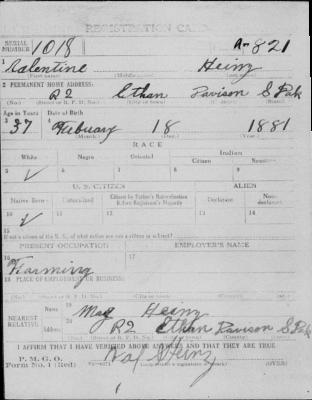 REGISTRATION CARD
SERIAL NUMBER 1018 A-821
1 Valentine Heinz
(First name) (Middle name) (Last name)
2 PERMANENT HOME ADDRESS:
R2 Ethan Davison S Dak
(No.) (Street or R. F. D. No.) (City or town) (County) (State)
Age in Years Date of Birth
3 37 4 Febuary 18 1881
(Month) (Day) (Year)
RACE
White Negro Oriental Indian
Citizen Noncitizen
5 ✓ 6 7 8 9
U. S. CITIZEN ALIEN
Native Born Naturalized Citizen by Father's Naturalization Before Registrant's Majority Declarant Non-declarant
10 ✓ 11 12 13 14
15
If not a citizen of the U. S., of what nation are you a citizen or subject?
PRESENT OCCUPATION EMPLOYER'S NAME
16 Farming 17
18 PLACE OF EMPLOYMENT OR BUSINESS:
(No.) (Street or R. F. D. No.) (City or town) (County) (State)
NEAREST RELATIVE
Name 19 Mag Heinz
Address 20 R2 Ethan Davison S Dak
(No.) (Street or R. F. D. No.) (City or town) (County) (State)
I AFFIRM THAT I HAVE VERIFIED ABOVE ANSWERS AND THAT THEY ARE TRUE
P. M. G. O.
Form No. 1 (Red) Val Heinz
(Registrant's signature or mark) (OVER)